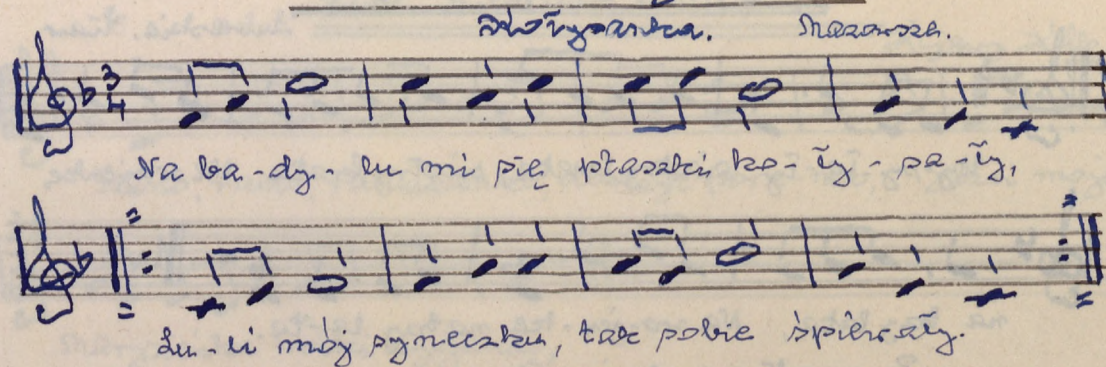 Kołysanka. Mazowsze.
3 4
Na ba-dy-lu mi się ptaszki ko-ły-sa-ły,
Lu-li mój syneczku, tak sobie śpiewały.